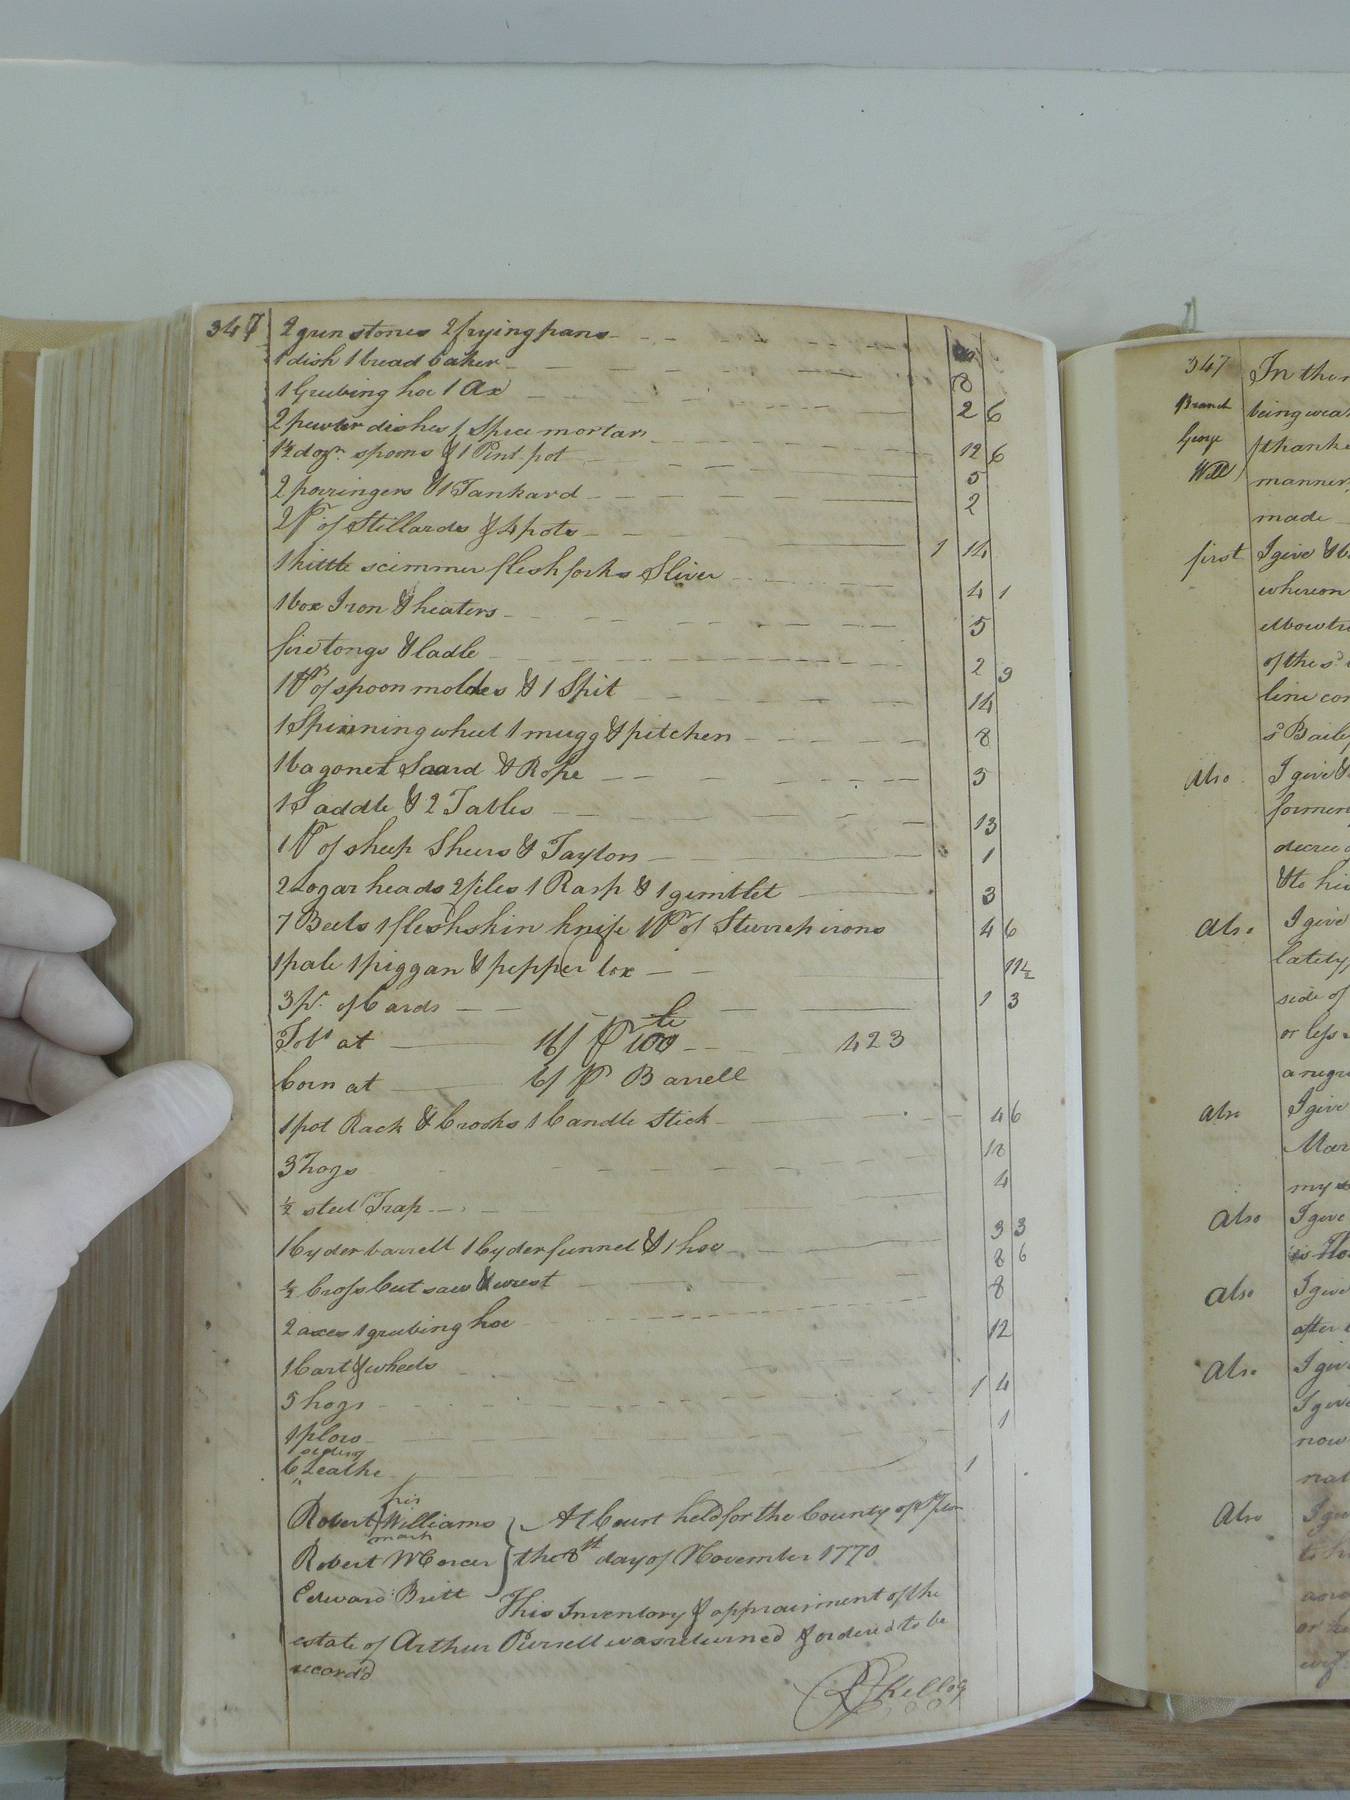 347 2 grinstones 2 frying pans
1 dish 1 bread baker
1 Grubing hoe 1 Ax 8
2 pewter dishes 1 Spice mortar 2 6
1½ dozn. spoons & 1 Pint pot 12 6
2 porringers & 1 Tankard 5
2 Pr of Stillards & 4 pots 2
1 kittle scimmer flesh forks Sliver 1 14
1 box Iron & heaters 4 1
fire tongs & ladle 5
1 Pr of spoon moldes & 1 Spit 2 9
1 Spinning wheel 1 mugg & pitchen 14
1 bagonet Saard & Rope 8
1 Saddle & 2 Tables 5
1 Pr of sheep Shers & Taylors 13
2 Logarheads 2 files 1 Rasp & 1 gimblet 1
7 Beels 1 fleshskin knife 1 Pr of Sturrep irons 3
1 pale 1 piggan & pepper box 4 6
3 pr. of Cards 11½
Tobo at 16/ P 100 423 1 3
Corn at 6/ P Barrell
1 pot Rack & Crooks 1 Candle Stick 4 6
3 hogs 18
½ steel Trap 4
1 Cyder barrell 1 Cyder funnel & 1 hoe 3 3
½ Cross Cut saw & wrest 8 6
2 axes 1 grubing hoe 8
1 Cart & wheels 12
5 hogs 1 4
1 plow 1
6 Leathe 1
his
Robert Williams At Court held for the County of
mark
Robert W Corcer the 8th day of November 1770
Edward Britt This Inventory & appraisment of the
estate of Arthur Purrell was returned & ordered to be
recordd
Kello
347 In the
Branch being wea
George thank
Will manner
made
first I give & b
whereon
of the sd
line con
sd Baile
Also I give &
former
decree
& to hi
Also I give
lately
side of
or less
a negr
also I give
Mar
my
Also I give
Also I give
after
Also I give
I give
now
nat
Also I give
or
wife